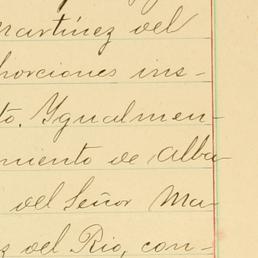 Martínez del
porciones ins-
to. Ygualmen-
miento de Alba
del Señor Ma-
z del Rio, con-